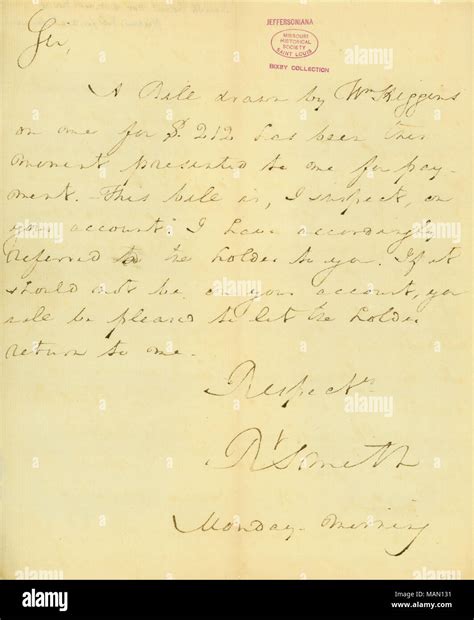 JEFFERSONIANA
MISSOURI
HISTORICAL
SOCIETY
SAINT LOUIS
BIXBY COLLECTION
Sir,
A Bill drawn by Wm Higgins
on me for $. 212 has been this
moment presented to me for pay-
ment. This bill is, I suspect, on
your account. I have accordingly
referred the holder to you. If it
should not be on your account, you
will be pleased to let the holder
return to me.
Respecty
R Smith
Monday morning
alamy
alamy stock photo
MAN131
www.alamy.com